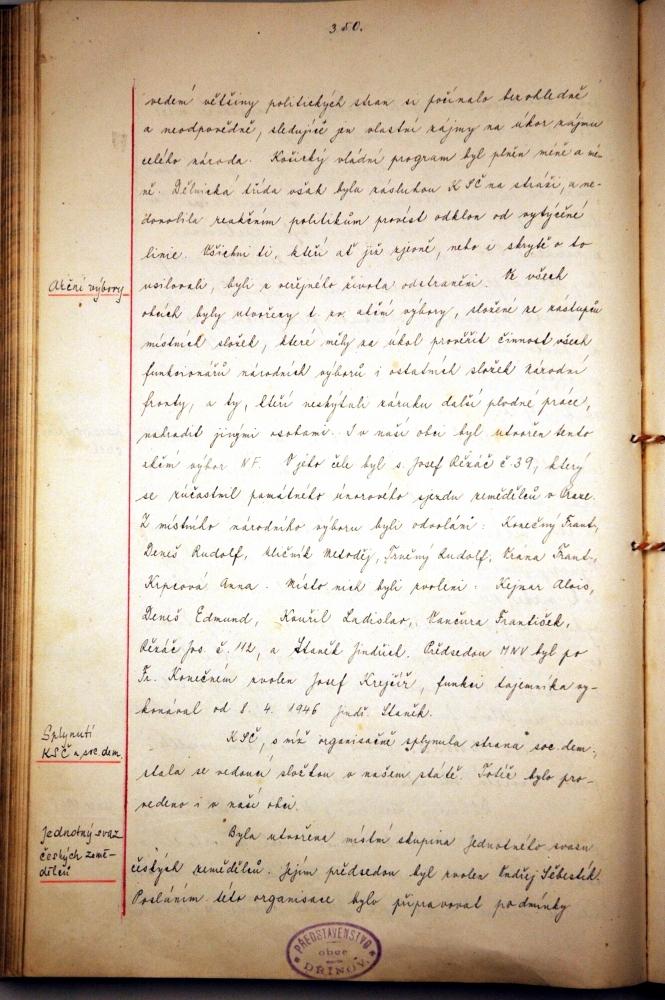 350.
vedení většiny politických stran si počínalo bezohledně
a neodpovědně, sledujíc jen vlastní zájmy na úkor zájmu
celého národa. Košický vládní program byl plněn méně a mé-
ně. Dělnická třída však byla zásluhou KSČ na stráži, a ne-
dovolila reakčním politikům provést odklon od vytýčené
linie. Všichni ti, kteří ať již zjevně, nebo i skrytě o to
Akční výbory
usilovali, byli z veřejného života odstraněni. Ve všech
obcích byly utvořeny t. zv. akční výbory, složené ze zástupců
místních složek, které měly za úkol prověřit činnost všech
funkcionářů národních výborů i ostatních složek národní
fronty, a ty, kteří neskýtali záruku další plodné práce,
nahradit jinými osobami. I v naší obci byl utvořen tento
akční výbor NF. V jeho čele byl s. Josef Řezáč č. 39, který
se zúčastnil památného únorového sjezdu zemědělců v Praze.
Z místního národního výboru byli odvoláni: Konečný Frant.,
Deneš Rudolf, Kličník Metoděj, Trněný Rudolf, Vrána Frant.,
Krpcová Anna. Místo nich byli zvoleni: Kejnar Alois,
Deneš Edmund, Kouřil Ladislav, Vančura František,
Řezáč Jos. č. 112, a Staněk Jindřich. Předsedou MNV byl po
Fr. Konečném zvolen Josef Krejčíř, funkci tajemníka vy-
konával od 8. 4. 1946 Jindř. Staněk.
Splynutí
KSČ a soc. dem.
KSČ, s níž organisačně splynula strana soc. dem.,
stala se vedoucí složkou v našem státě. Totéž bylo pro-
vedeno i v naší obci.
Jednotný svaz
českých země-
dělců
Byla utvořena místní skupina Jednotného svazu
českých zemědělců. Jejím předsedou byl zvolen Ondřej Šebesták.
Posláním této organisace bylo připravovat podmínky
PŘEDSTAVENSTVO
obce
DŘÍNOV.